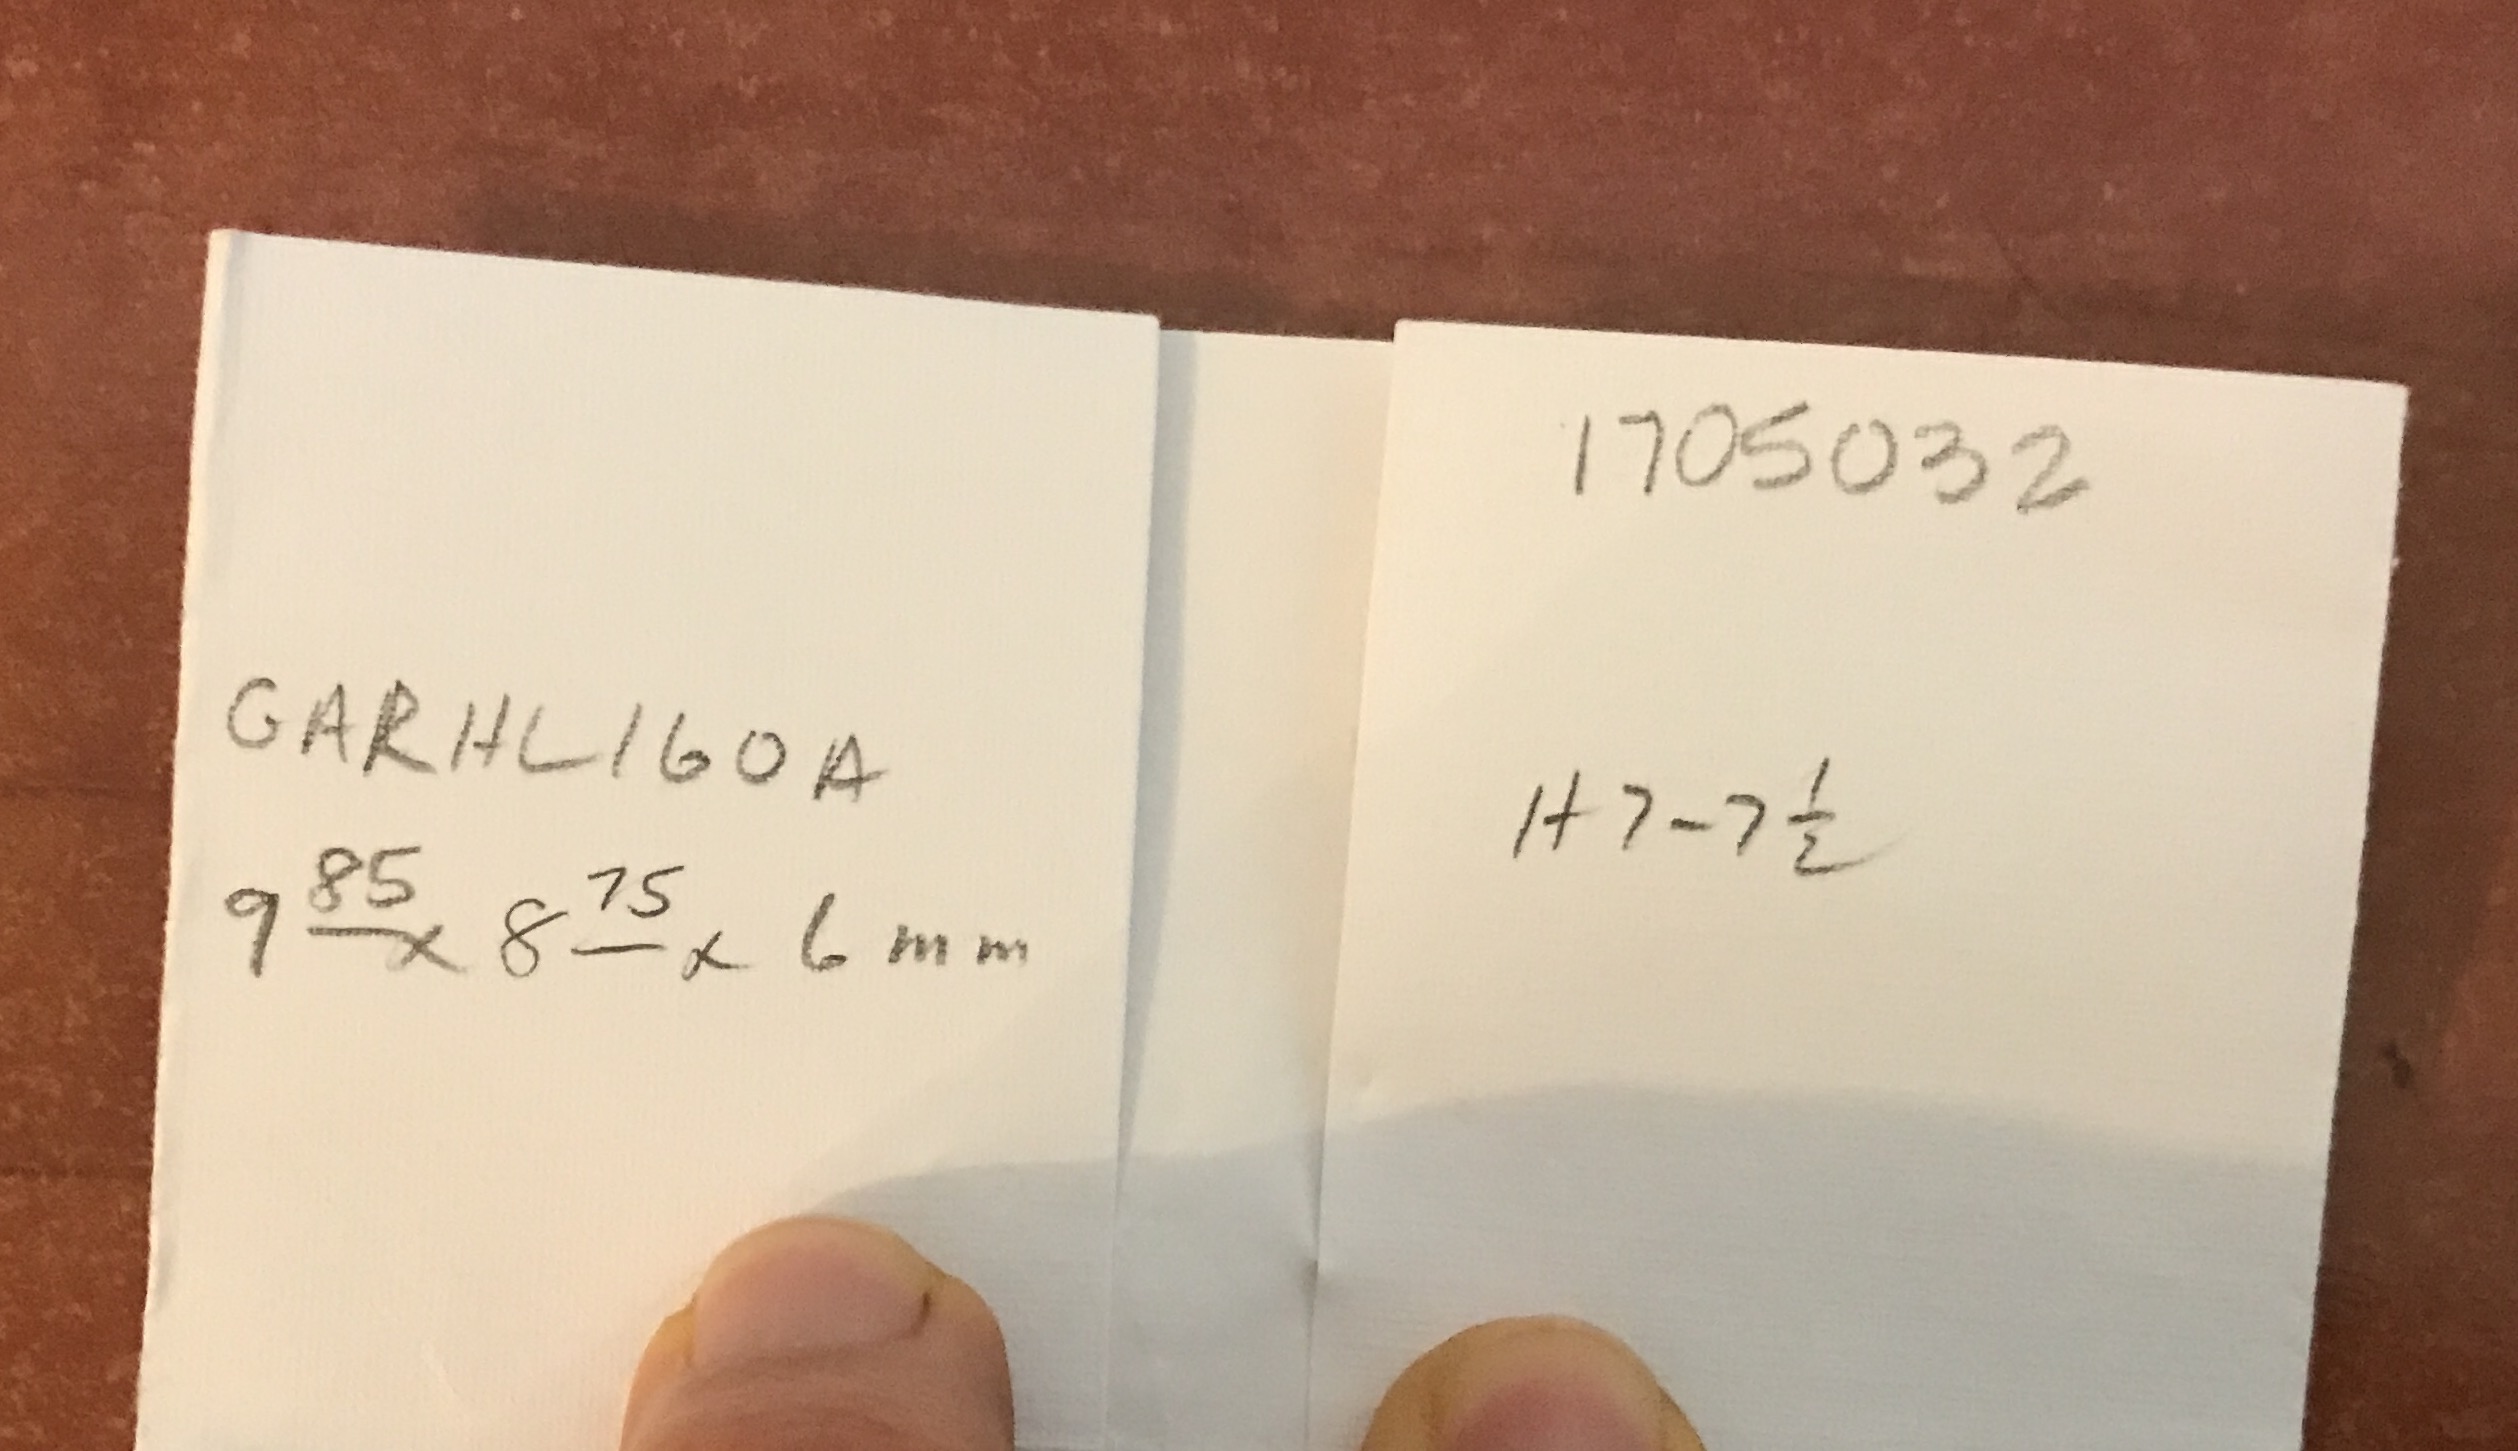 GARHL160A
9 85 x 8 75 x 6 mm
1705032
H 7-7 1/2